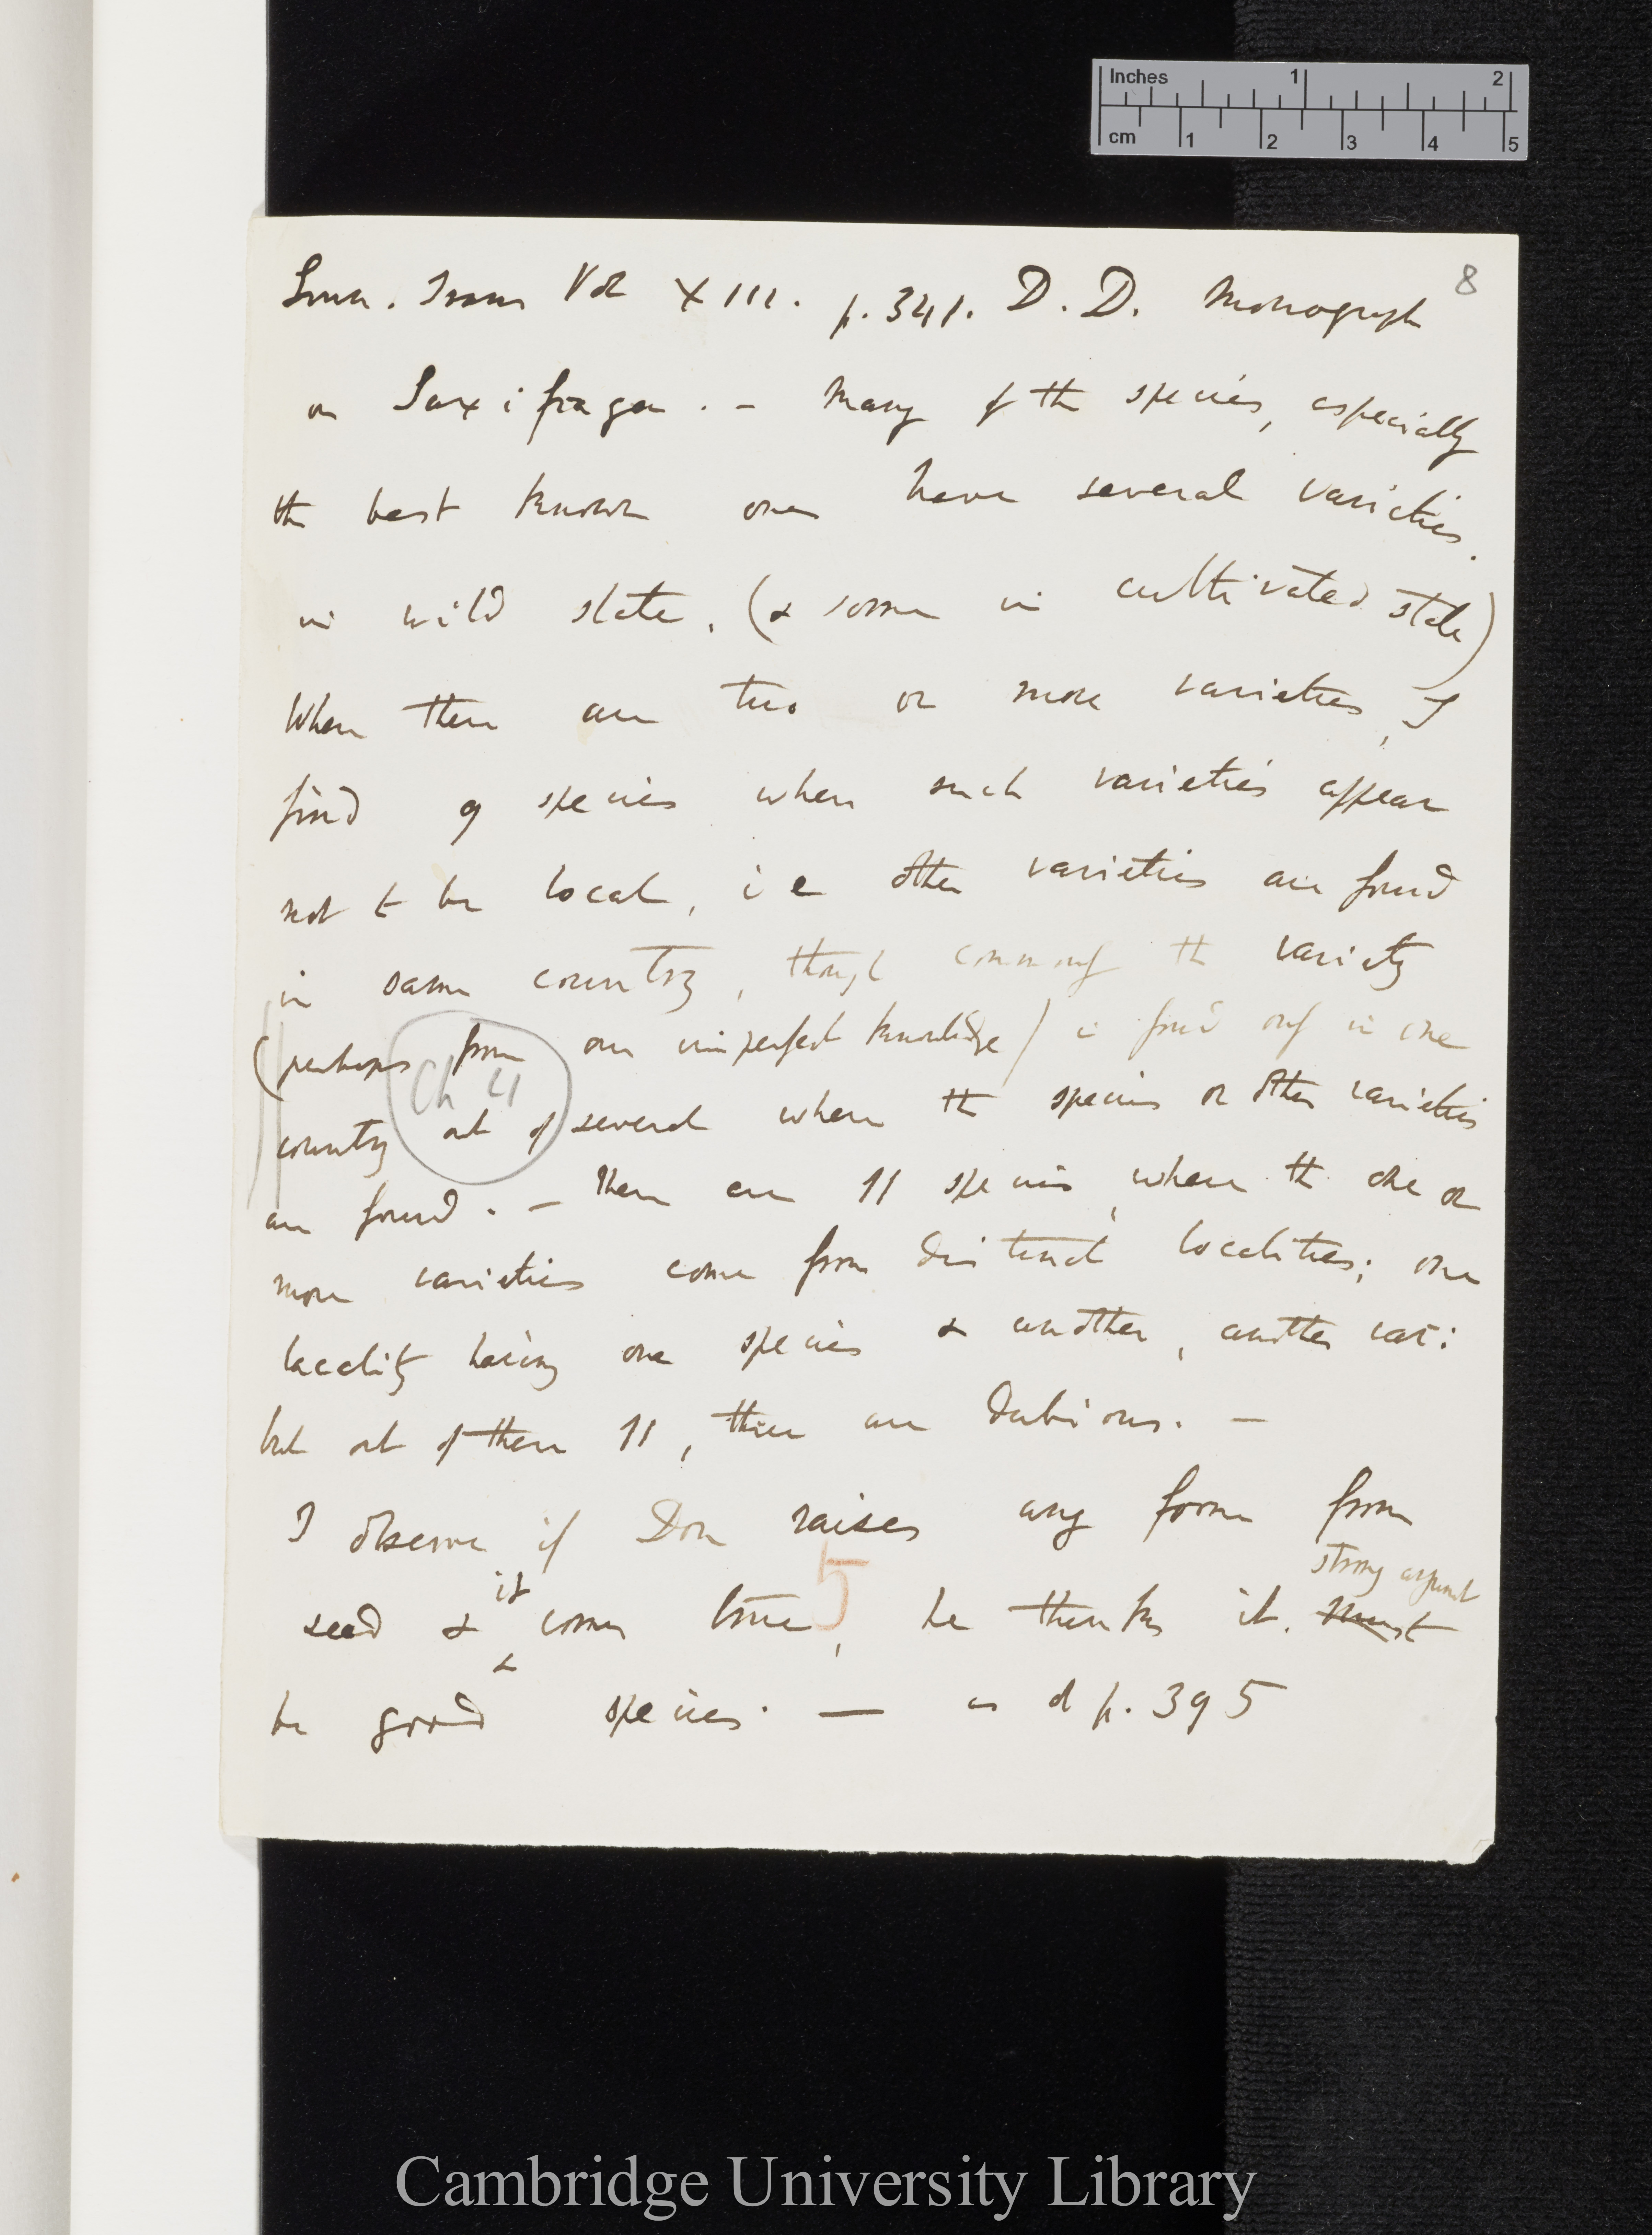 Inches 1 2
cm 1 2 3 4 5
8
Linn. Trans Vol XIII. p. 341. D. D. Monograph
on Saxifraga. - Many of the species, especially
the best known ones have several varieties.
in wild state. (& some in cultivated state)
When there are two or more varieties, I
find 9 species when such varieties appear
not to be local, i e other varieties are found
in same country, though commonly the variety
(perhaps from our imperfect knowledge) is found only in one
Ch 4
country out of several where the species or other varieties
are found. - There are 11 species, where the one or
more varieties come from distinct localities; one
locality having one species & another, another var:
but out of these 11, three are dubious. —
I observe if Don raises any form from
strong argument
seed & it comes true, he thinks it. must
5
be good & species. — as at p. 395
Cambridge University Library